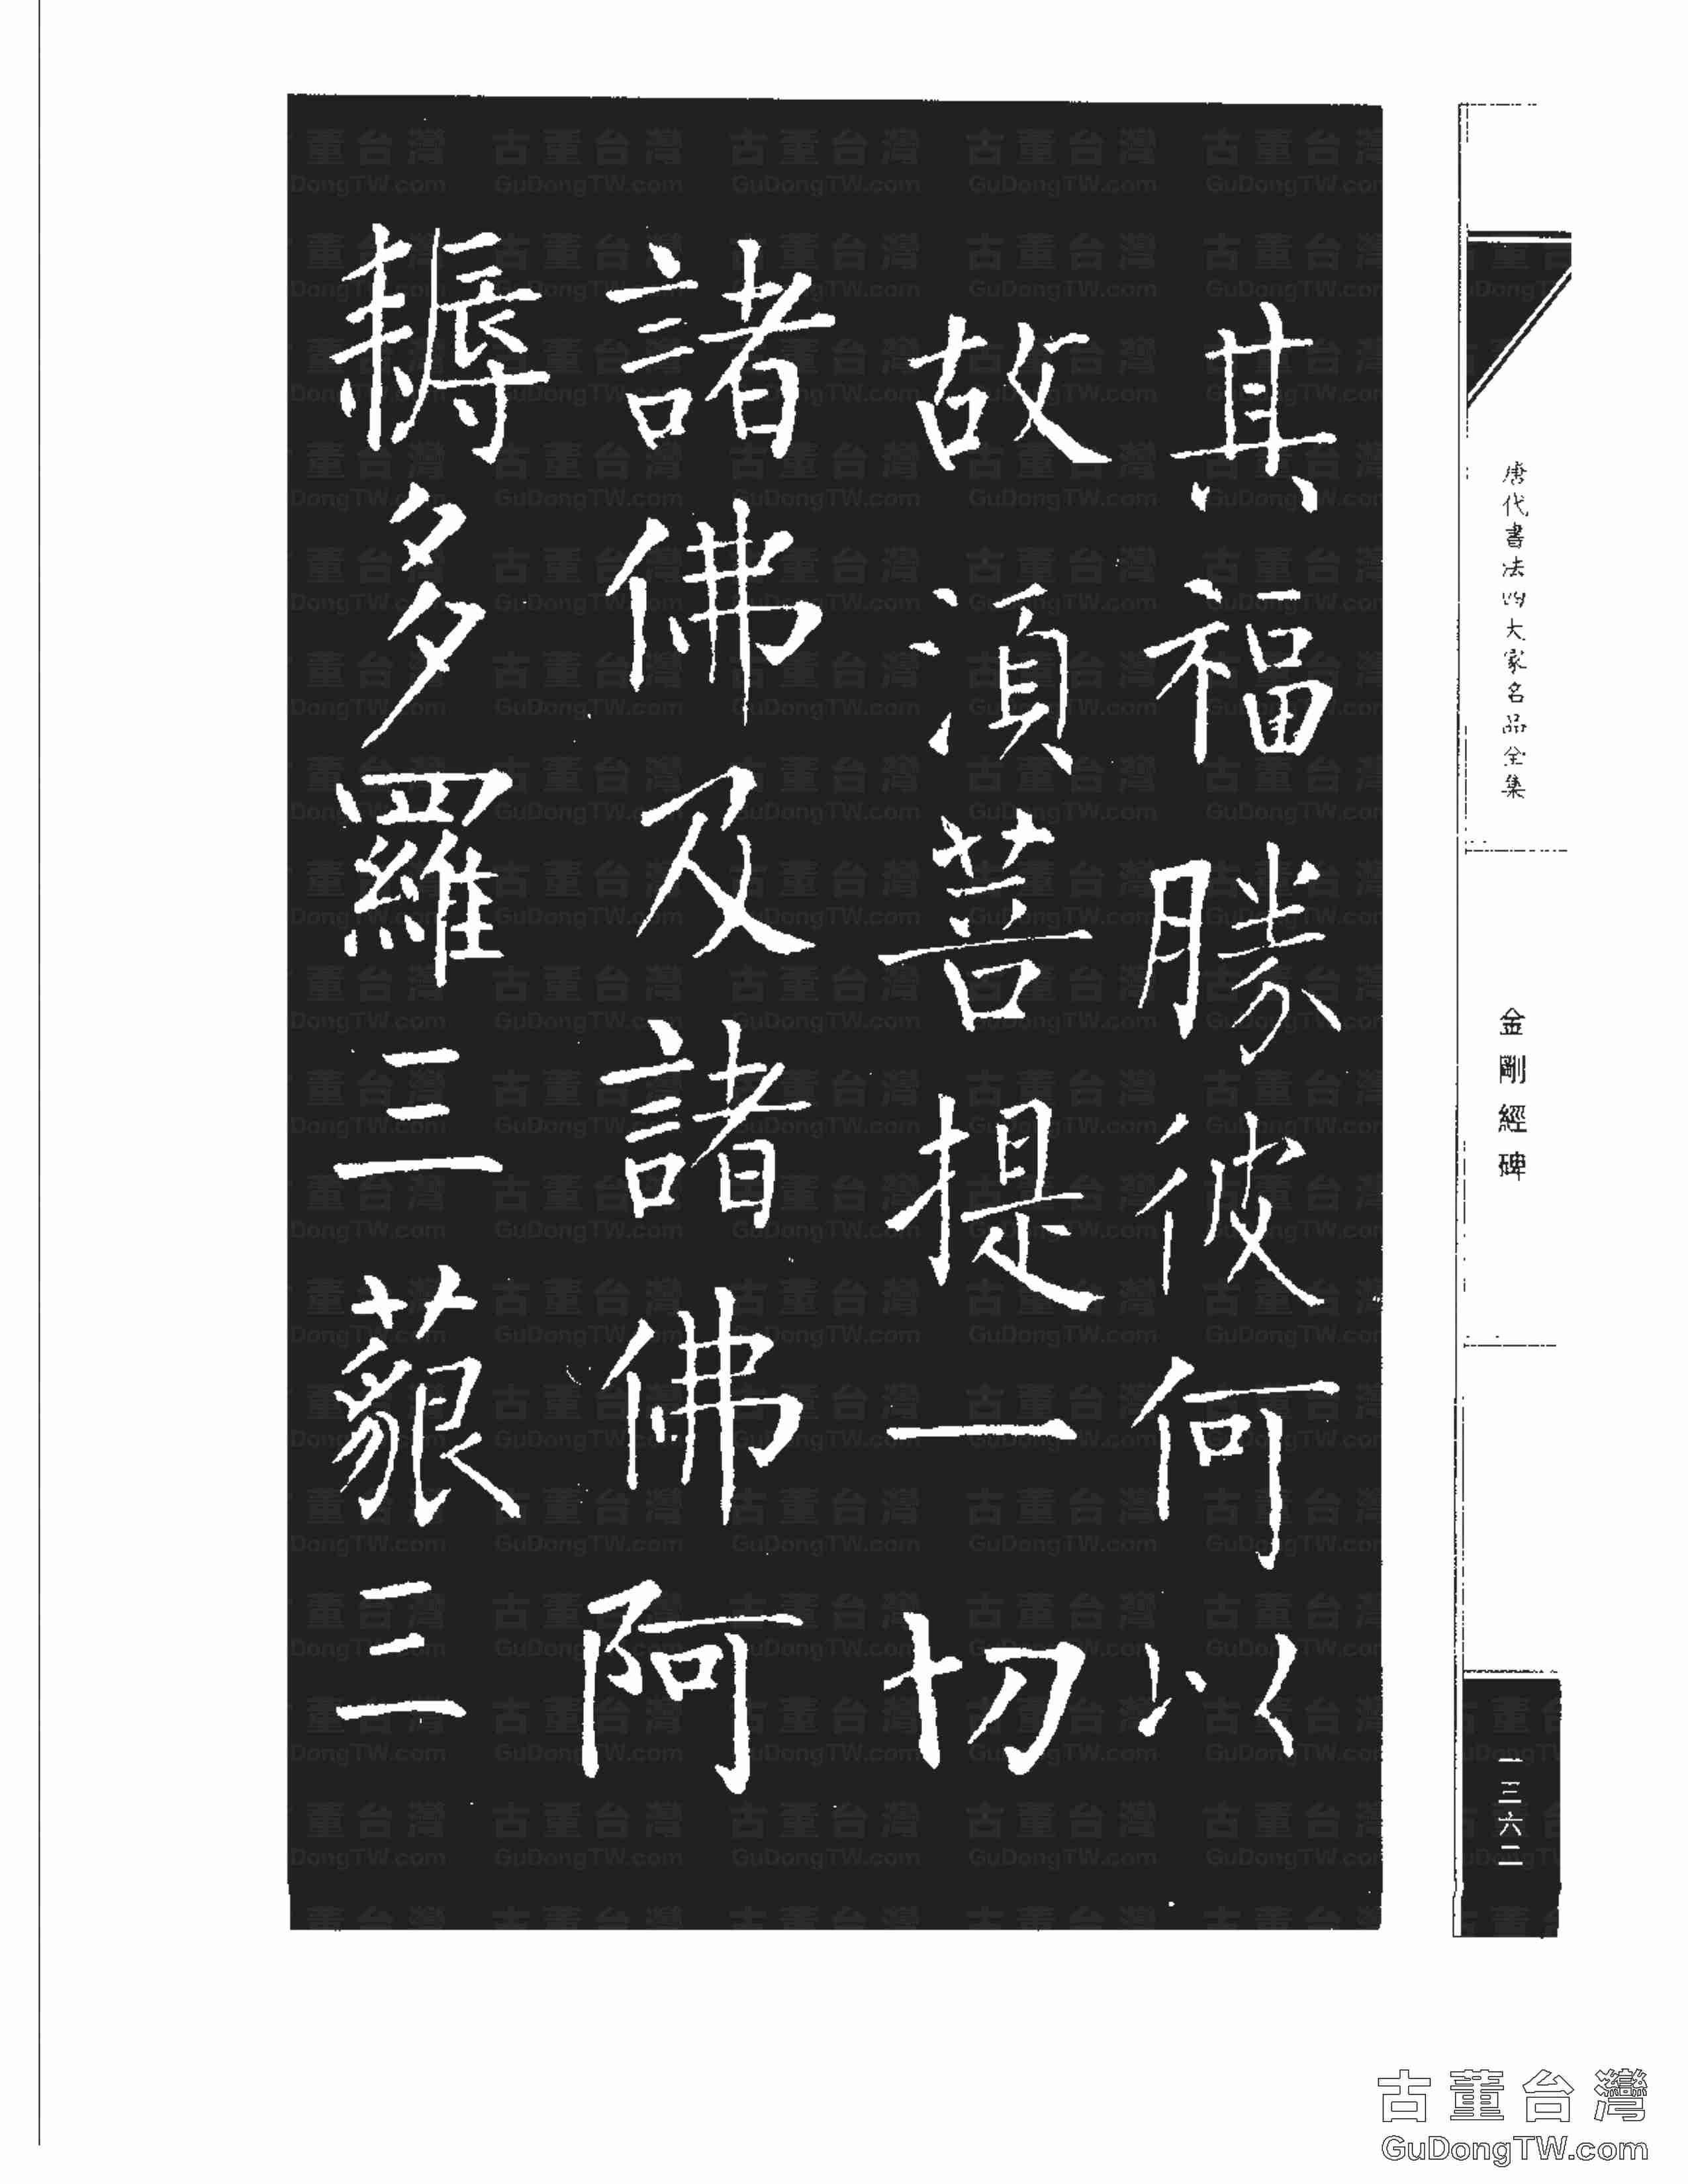 唐代書法四大家名品全集
金剛經碑
一三六二
其福勝彼何以
故湏菩提一切
諸佛及諸佛阿
耨多羅三藐三
古董台灣
GuDongTW.com